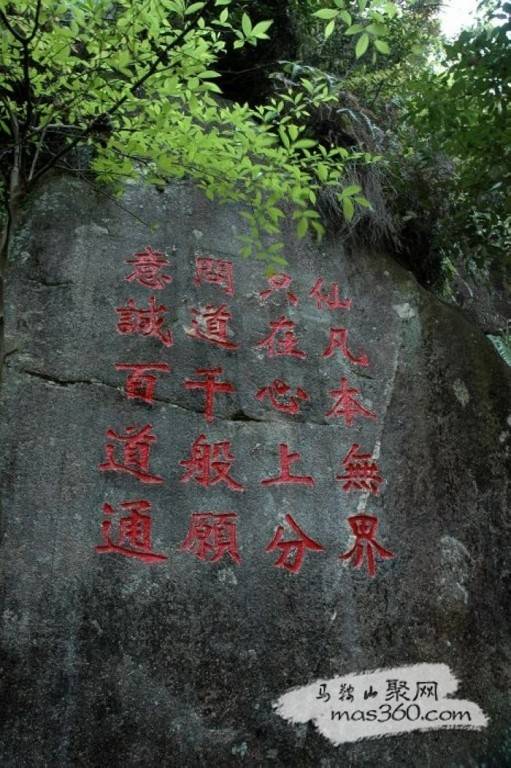 仙凡本無界
只在心上分
問道千般願
意誠百道通
马鞍山聚网
mas360.com